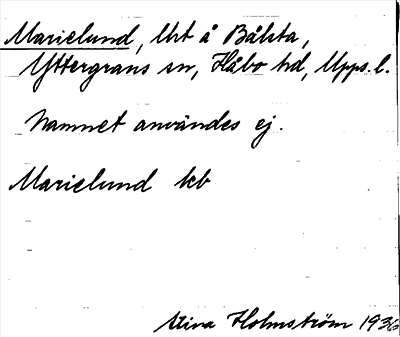 Marielund, lht å Bålsta,
Yttergrans sn, Håbo hd, Upps. l.
Namnet användes ej.
Marielund kb
Stina Holmström 1936